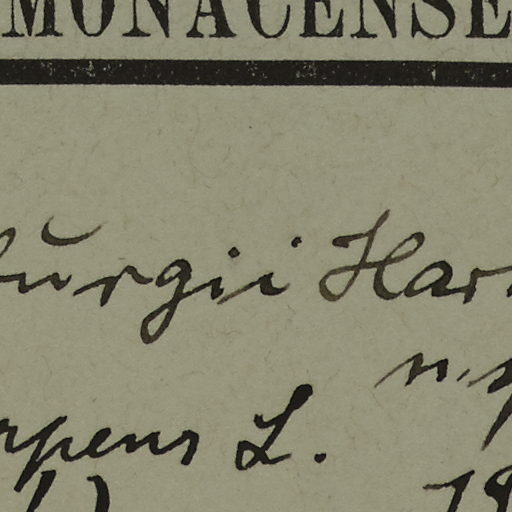 MONACENSE
burgii Har
n. sp
rpens L.
19